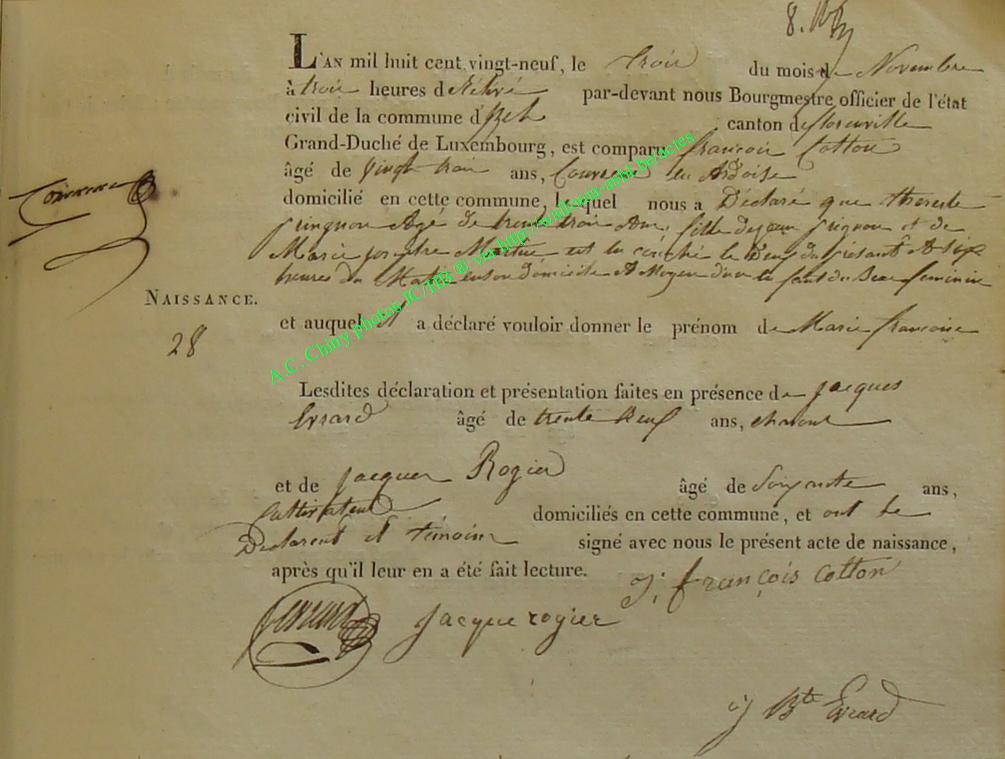 L'AN mil huit cent vingt-neuf, le trois du mois de Novembre
à trois heures de Relevé par-devant nous Bourgmestre officier de l'état
civil de la commune d canton de florenville
Grand-Duché de Luxembourg, est comparu françois Cotton
âgé de vingt trois ans, Couvreur en Ardoise
domicilié en cette commune, lequel nous a Déclaré que therese
Agé de trente trois Ans fille de jean et de
Marie josephe est le Deux du présent A six
heures du Matin en son domicile du Sexe feminin
NAISSANCE.
28
et auquel il a déclaré vouloir donner le prénom de Marie françoise
Lesdites déclaration et présentation faites en présence de jacques
Evrard âgé de trente neuf ans,
et de jacques Rogier âgé de Soixante ans,
Cultivateur domiciliés en cette commune, et ont le
Declarent et témoins signé avec nous le présent acte de naissance,
après qu'il leur en a été fait lecture.
j: françois cotton
jacque rogier
j Bte Evrard
A.C. Chiny Photos JC/HB @ via http://wallonia-asbl.be/actes